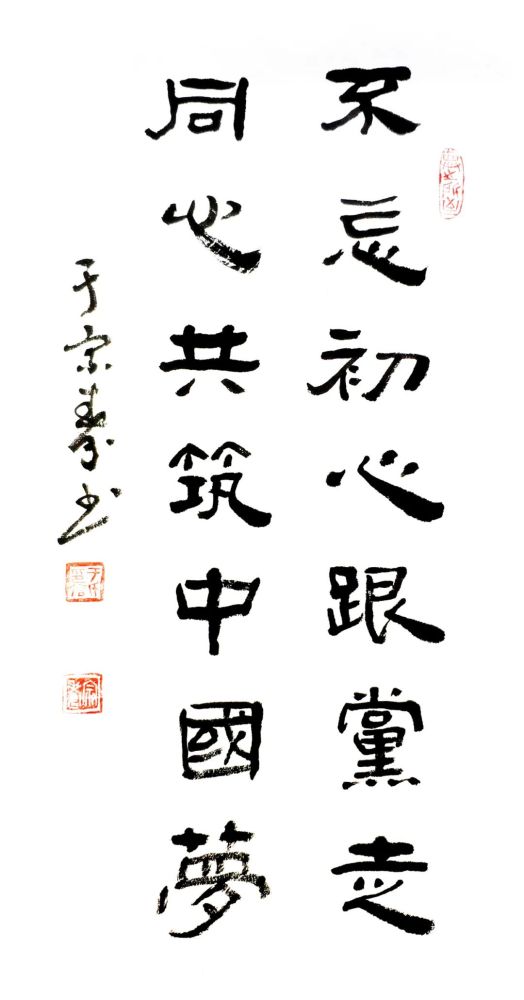 不忘初心跟黨走
同心共筑中國夢
于宗寿书